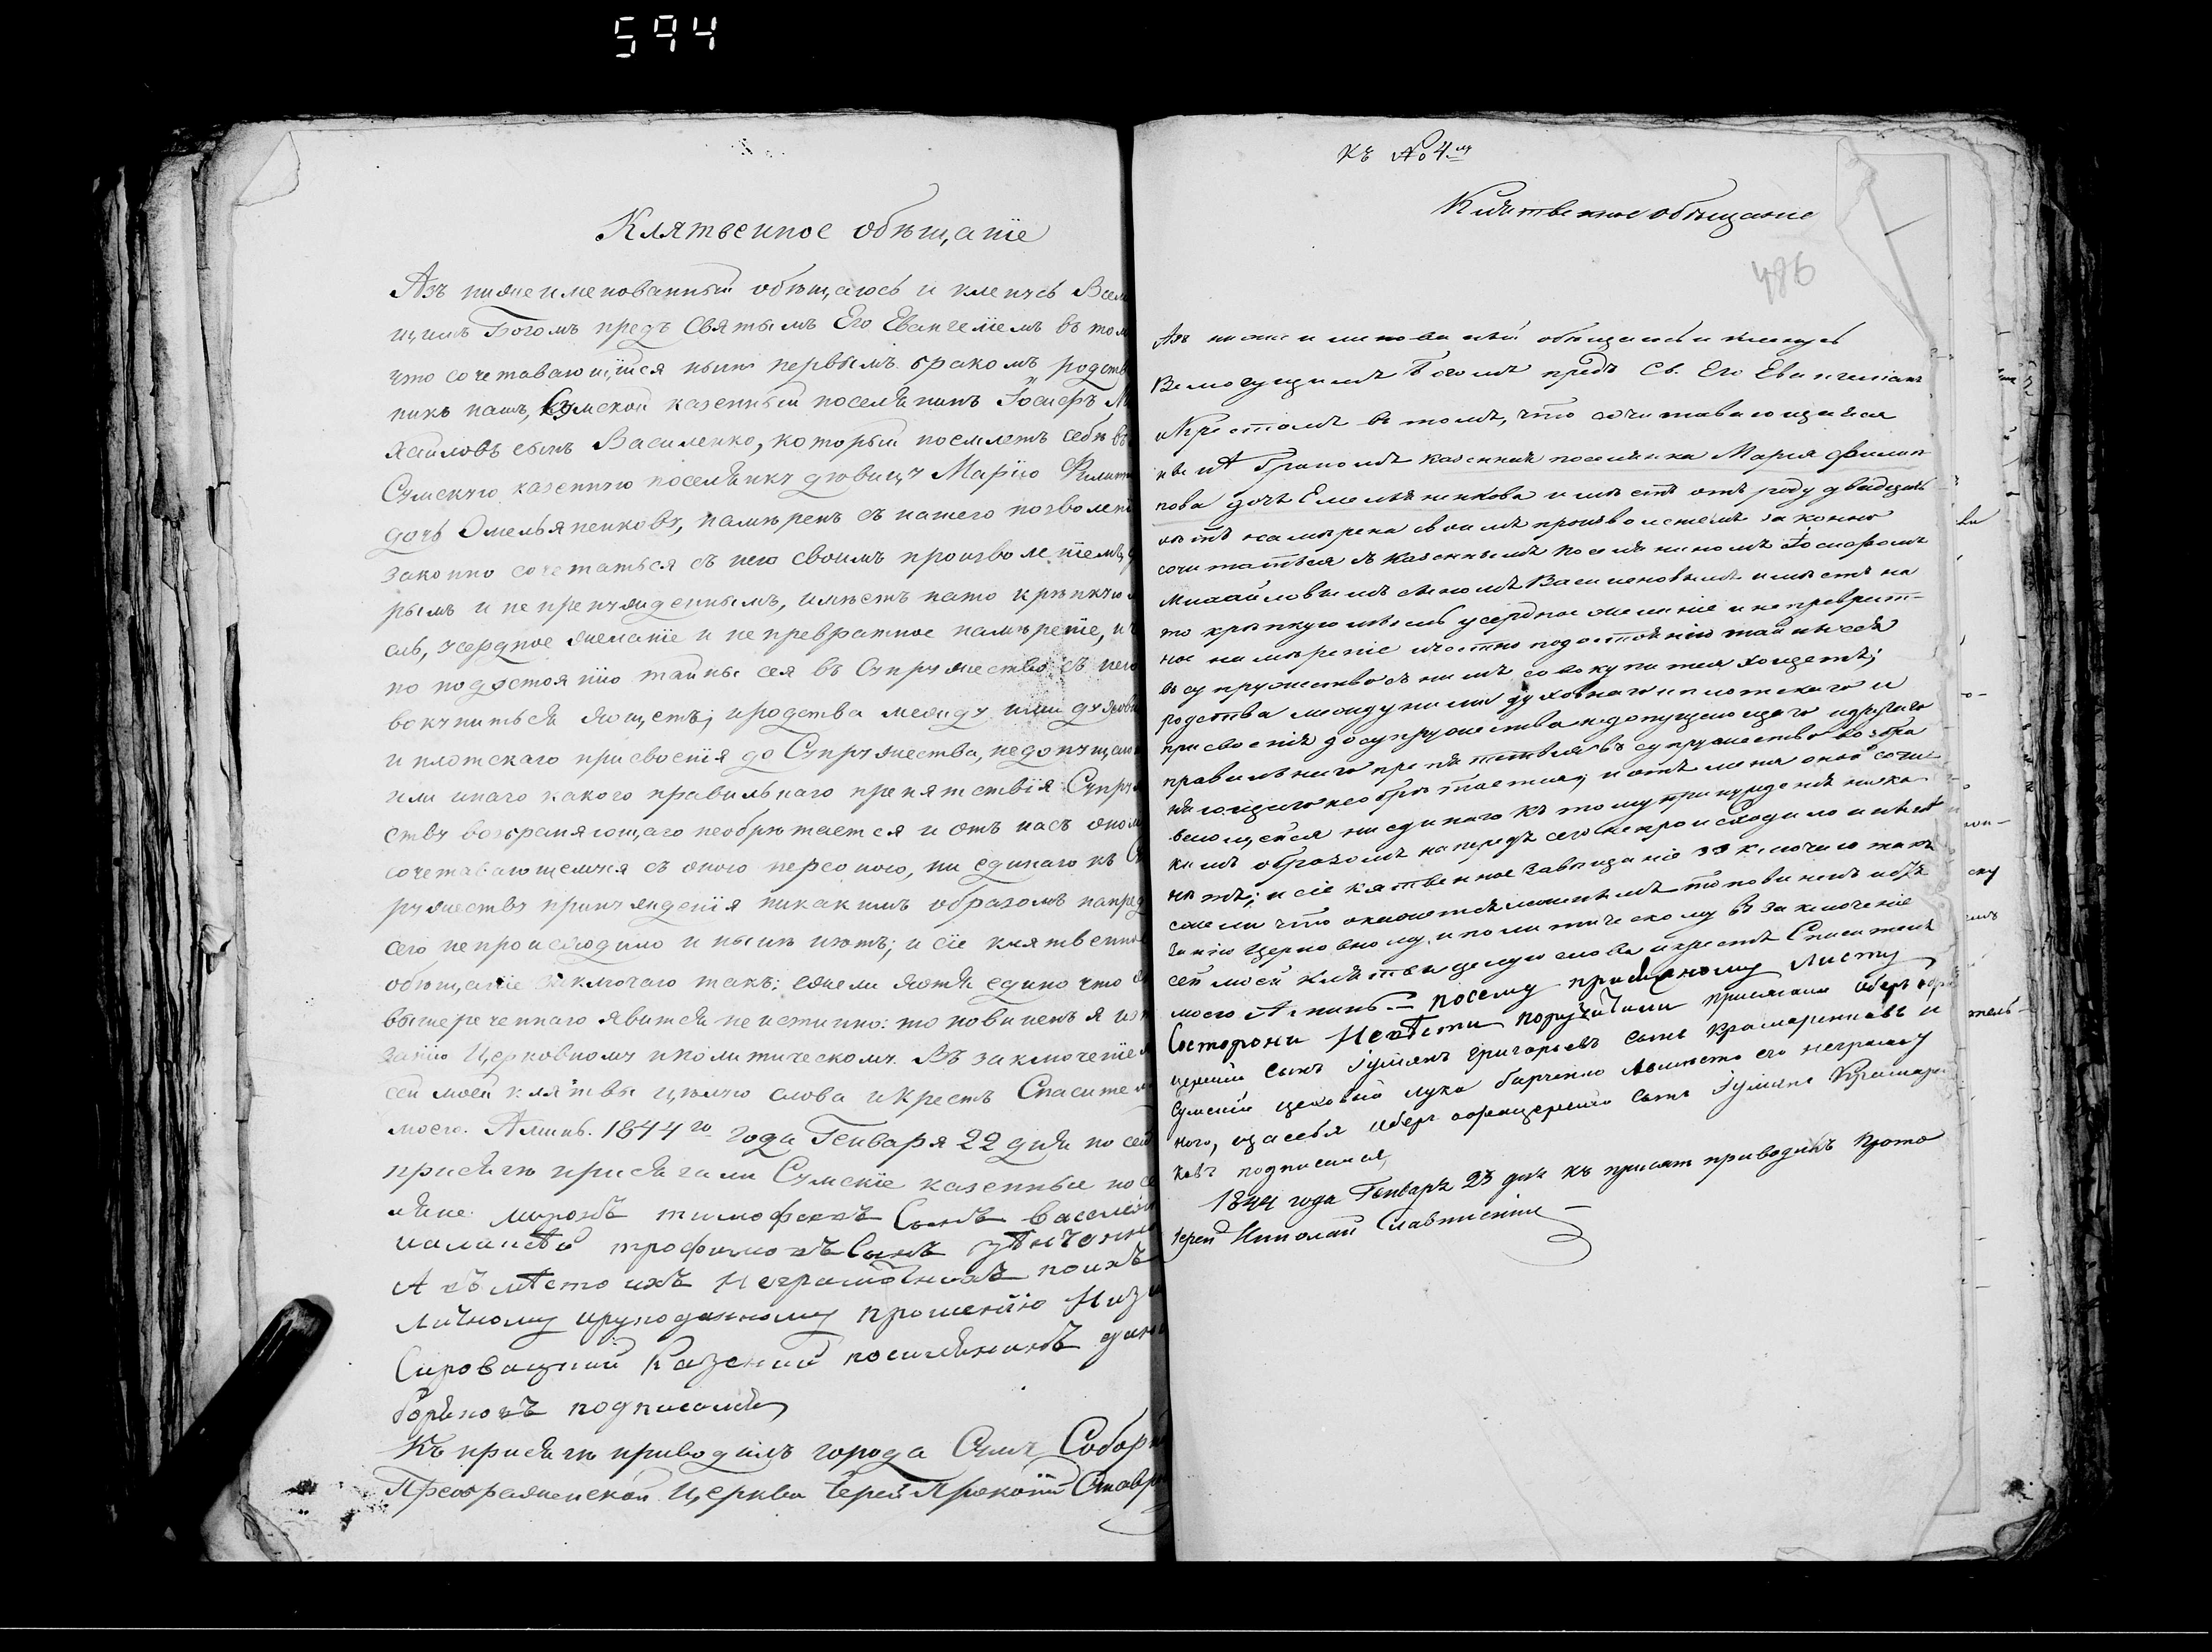 594
Клятвенное обѣщаніе
Азъ нижеименованный обѣщаюсь и кленусь Всем
щимъ Богомъ предъ Святымъ Его Евангеліемъ въ том
что сочетавающійся нынѣ первымъ бракомъ родств
никъ нашъ, Сумской казенный поселянинъ Іосифъ М
хайловъ сынъ Василенко, который поемлетъ себѣ въ
Сумскую казенную поселянку дѣвицу Марію Филип
дочь Омельяненкову, намѣренъ съ нашего позволен
законно сочетаться съ нею своимъ произволеніемъ, д
рымъ и непренужденнымъ, имѣетъ нато крѣпкую м
сль, усердное желаніе и непревратное намѣреніе, и ч
но подостоянію тайны сея въ Супружество съ нею
вокупиться хощетъ; иродства между ими духовн
и плотскаго присвоенія до Супружества, недопущаю
или инаго какого правильнаго препятствія Супру
ству возбраняющаго необрѣтается и отъ насъ оном
сочетавающемуся съ оною персоною, ни единаго къ С
ружеству принужденія никакимъ образомъ напред
сего непроисходило и нынѣ нѣтъ; и сіе клятвенно
обѣщаніе заключаю такъ: ежели хотя едино что
вышереченнаго явится неистинно: то повиненъ я ист
занію Церковному иполитическому. Въ заключеніе
сей моей клятвы цѣлую слова икрестъ Спасител
моего. Аминь. 1844го года Генваря 22 дня по сей
присягѣ присягали Сумскіе казенные посе
ляне. миронъ тимофеевъ Сынъ василен
трофимовъ Сынъ
А въмѣсто ихъ неграмотныхъ поихъ
личному ирукоданному прошенію Низ
Сироваткий Казений поселянинъ
подписался
Къ присягѣ приводилъ города Сумъ Собор
Преображенской Церкви Іерей Прокопій Ставр
Къ №4му
Клятвенное обѣщаніе
486
Азъ нижеименованный обѣщаюсь и кленусь
Всемогущимъ Богомъ предъ Св. Его Евангеліемъ
иКрестомъ въ томъ, что сочитавающаяся
казенная поселянка Марія Филип
пова дочь Емельяненкова имѣетъ отъ роду двадцать
лѣтъ намѣрена своимъ произволеніемъ законно
сочитаться съ казеннымъ поселяниномъ Іосифомъ
Михайловымъ сыномъ Василенковымъ имѣетъ на
то крѣпкую мысль усердное желаніе и непреврат-
ное намѣреніе ичестно подостоянію тайны сея
въсупружество съ нимъ совокупится хощетъ;
родства между ними духовнаго иплотскаго и
присвоенія досупружества недопущающаго идругаго
правильнаго препятствія въ супружество возбра
няющаго необрѣтается; и отъ меня оной сочи
вающейся ниединаго къ тому принужденія ника
кимъ образомъ напредъ сего непроисходило инынѣ
нѣтъ; и сіе клятвенное завѣщаніе заключаю такъ
ежели что окажется ложнымъ то повиненъ
занію церковному и политическому въ заключеніе
сей моей клятвы целую слова икрестъ Спасителя
моего Аминь.— посему присяжному листу
Состороны невѣсты поручители присягали Оберъ офи
церскій сынъ Григорьевъ сынъ Крамаренковъ и
Сумскій цеховый лука авмѣсто его неграмот
ного, изасебя Оберъ офицерскій сынъ Крамарен
ковъ подписался,
1844 года Генваря 23 дня къ присягѣ приводилъ Прото
Іерей Николай